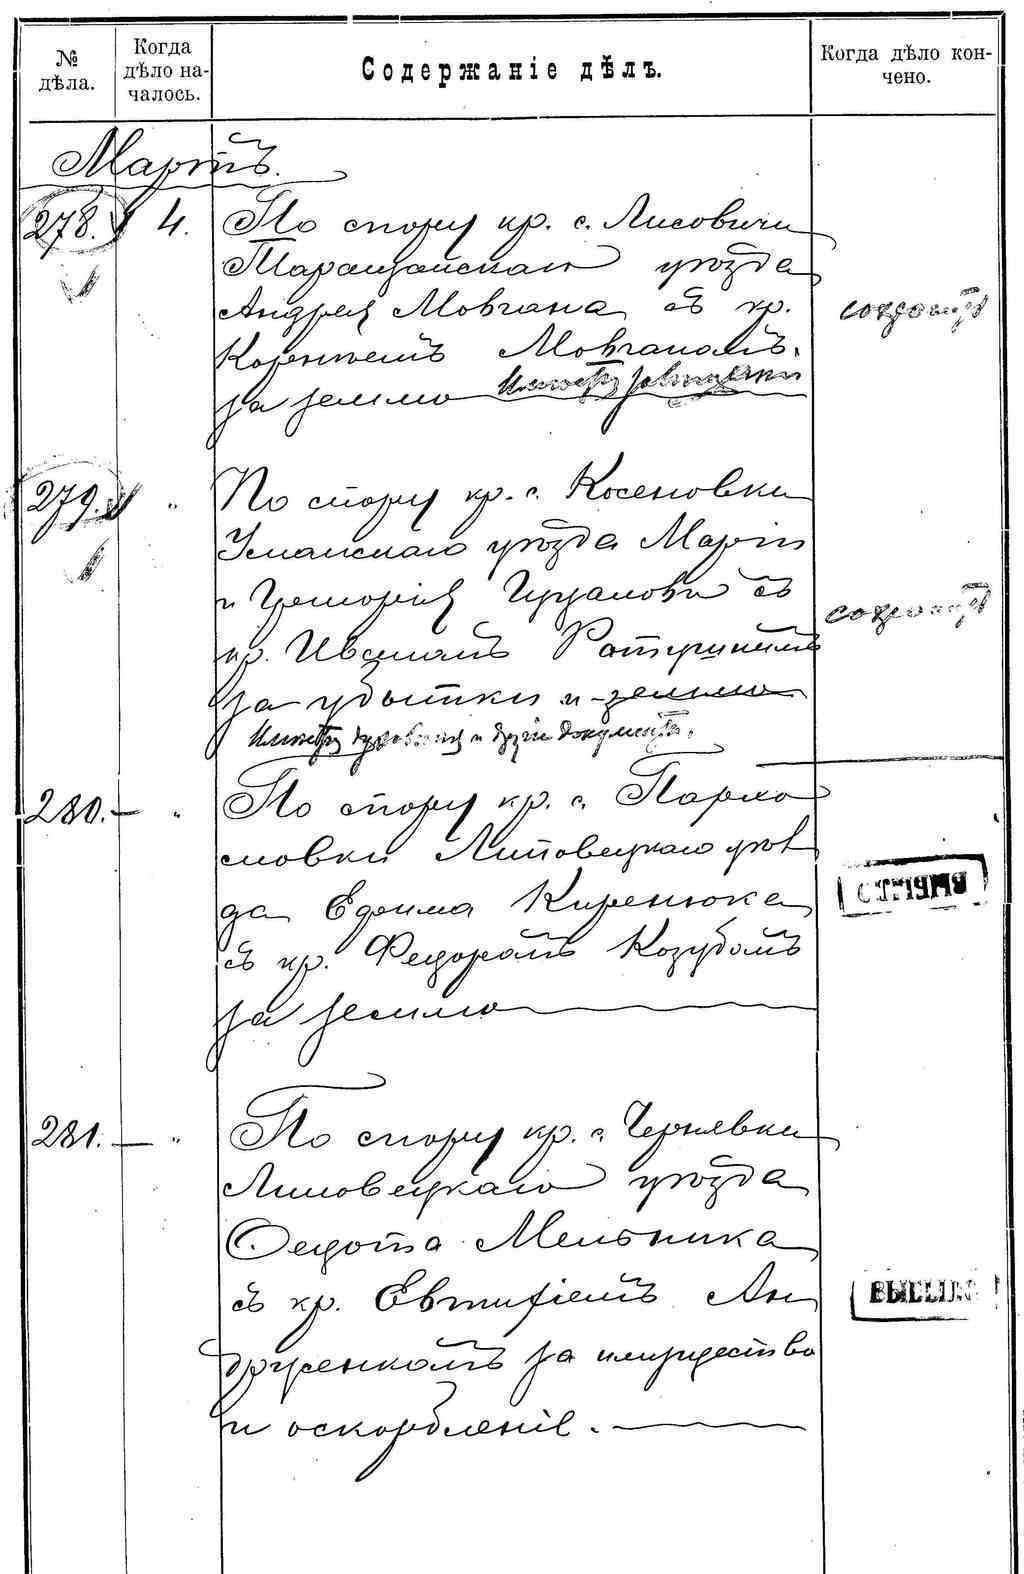 № дѣла.
Когда дѣло началось.
Содержаніе дѣлъ.
Когда дѣло кончено.
Мартъ.
278. 4. По спору кр. с. Лисовичи
Таращанскаго уѣзда
Андрея Мовчана съ кр.
Корнѣемъ Мовчаномъ
за землю
279. " По спору кр. с. Косеновки
Уманскаго уѣзда Маріи
и Григорія съ
кр. Иваномъ
за убытки и землю
и другіе документы.
280. — " По спору кр. с. Пархо
мовки Липовецкаго уѣз
да Ефима Киренюка
съ кр. Федоромъ Козубомъ
за землю
281. — " По спору кр. с. Чернявки
Липовецкаго уѣзда
Федота Мельника
съ кр. Евтихіемъ Ан
друсенкомъ за имущество
и оскорбленіе.